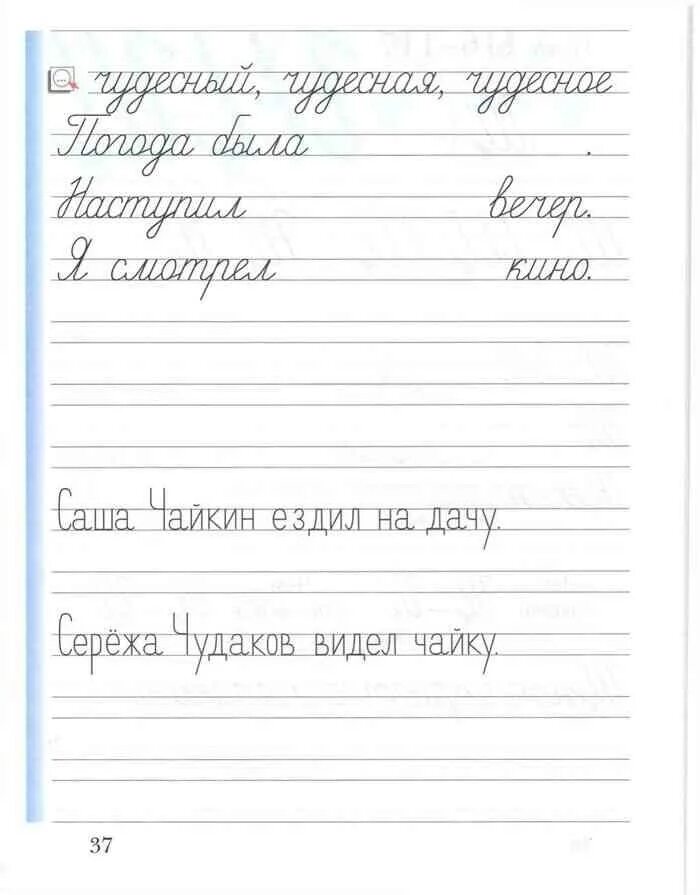 чудесный, чудесная, чудесное
Погода была .
Наступил вечер.
Я смотрел кино.
Саша Чайкин ездил на дачу.
Серёжа Чудаков видел чайку.
37